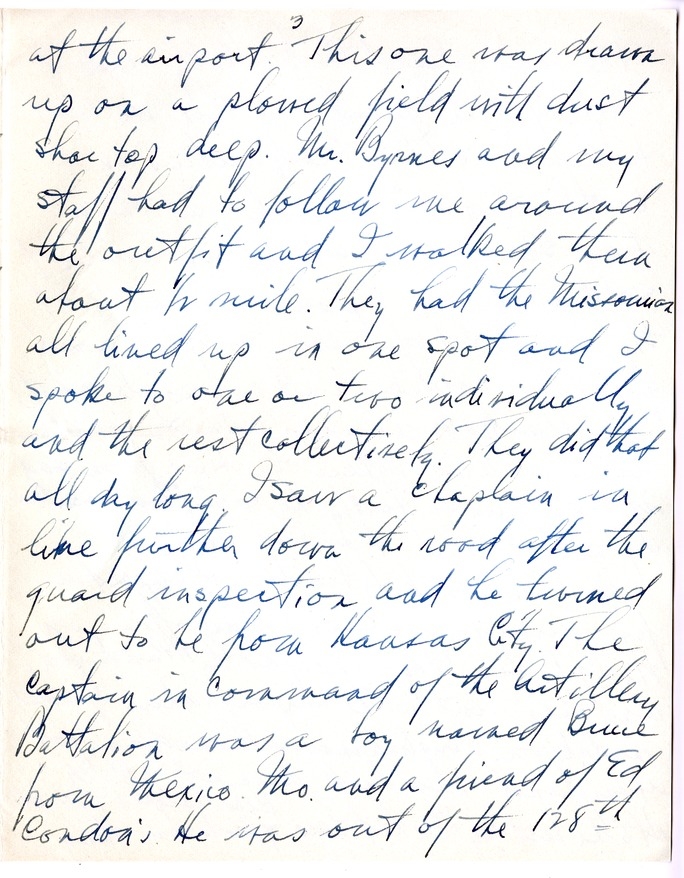 3
at the airport. This one was drawn
up on a plowed field with dust
shoe top deep. Mr. Byrnes and my
staff had to follow me around
the outfit and I walked them
about 1/2 mile. They had the Missourians
all lined up in one spot and I
spoke to one or two individually
and the rest collectively. They did that
all day long. I saw a chaplain in
line further down the road after the
guard inspection and he turned
out to be from Kansas City. The
captain in command of the Artillery
Battalion was a boy named
from Mexico. Mo. and a friend of Ed
Condon's. He was out of the 128th